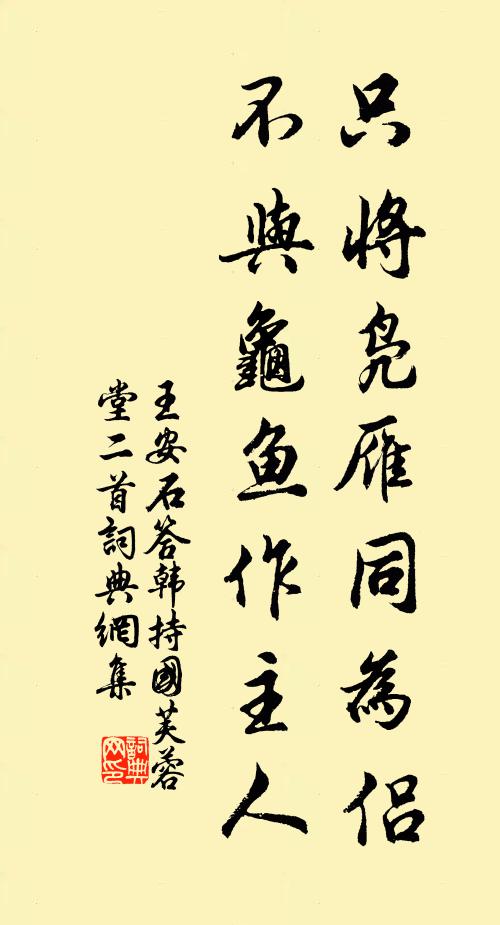 只將鳧雁同為侶
不與龜魚作主人
王安石答韩持國芙蓉
堂二首詞典網集
詞典
网印